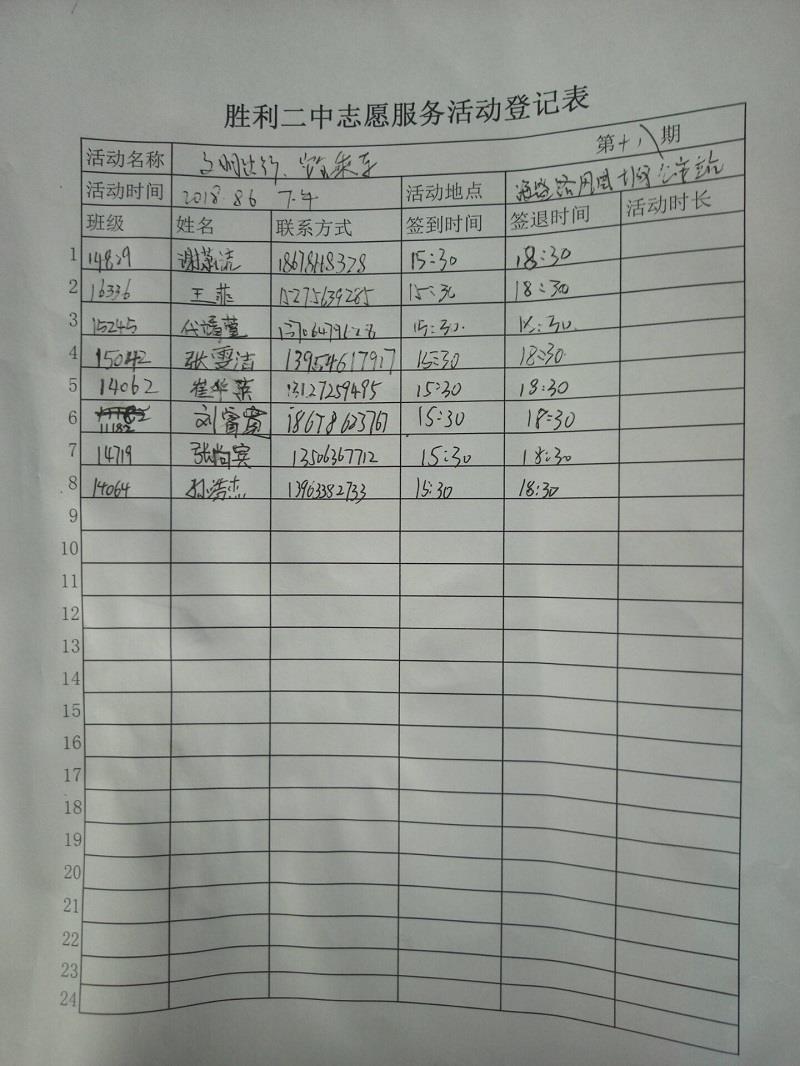 胜利二中志愿服务活动登记表
第十八期
活动名称 文明出行、安全乘车
活动时间 2018.8.6 下午 活动地点 公交站
班级 姓名 联系方式 签到时间 签退时间 活动时长
1 14829 谢 15:30 18:30
2 16336 王菲 15275639285 15:30 18:30
3 15245 15:30. 18:30.
4 15042 张雪洁 13954617917 15:30 18:30
5 14062 崔华英 13127259495 15:30 18:30
6 11182 刘 18678623767 15:30 18:30
7 14719 张尚宾 13506367712 15:30 18:30
8 14064 孙浩杰 13963382733 15:30 18:30
9
10
11
12
13
14
15
16
17
18
19
20
21
22
23
24